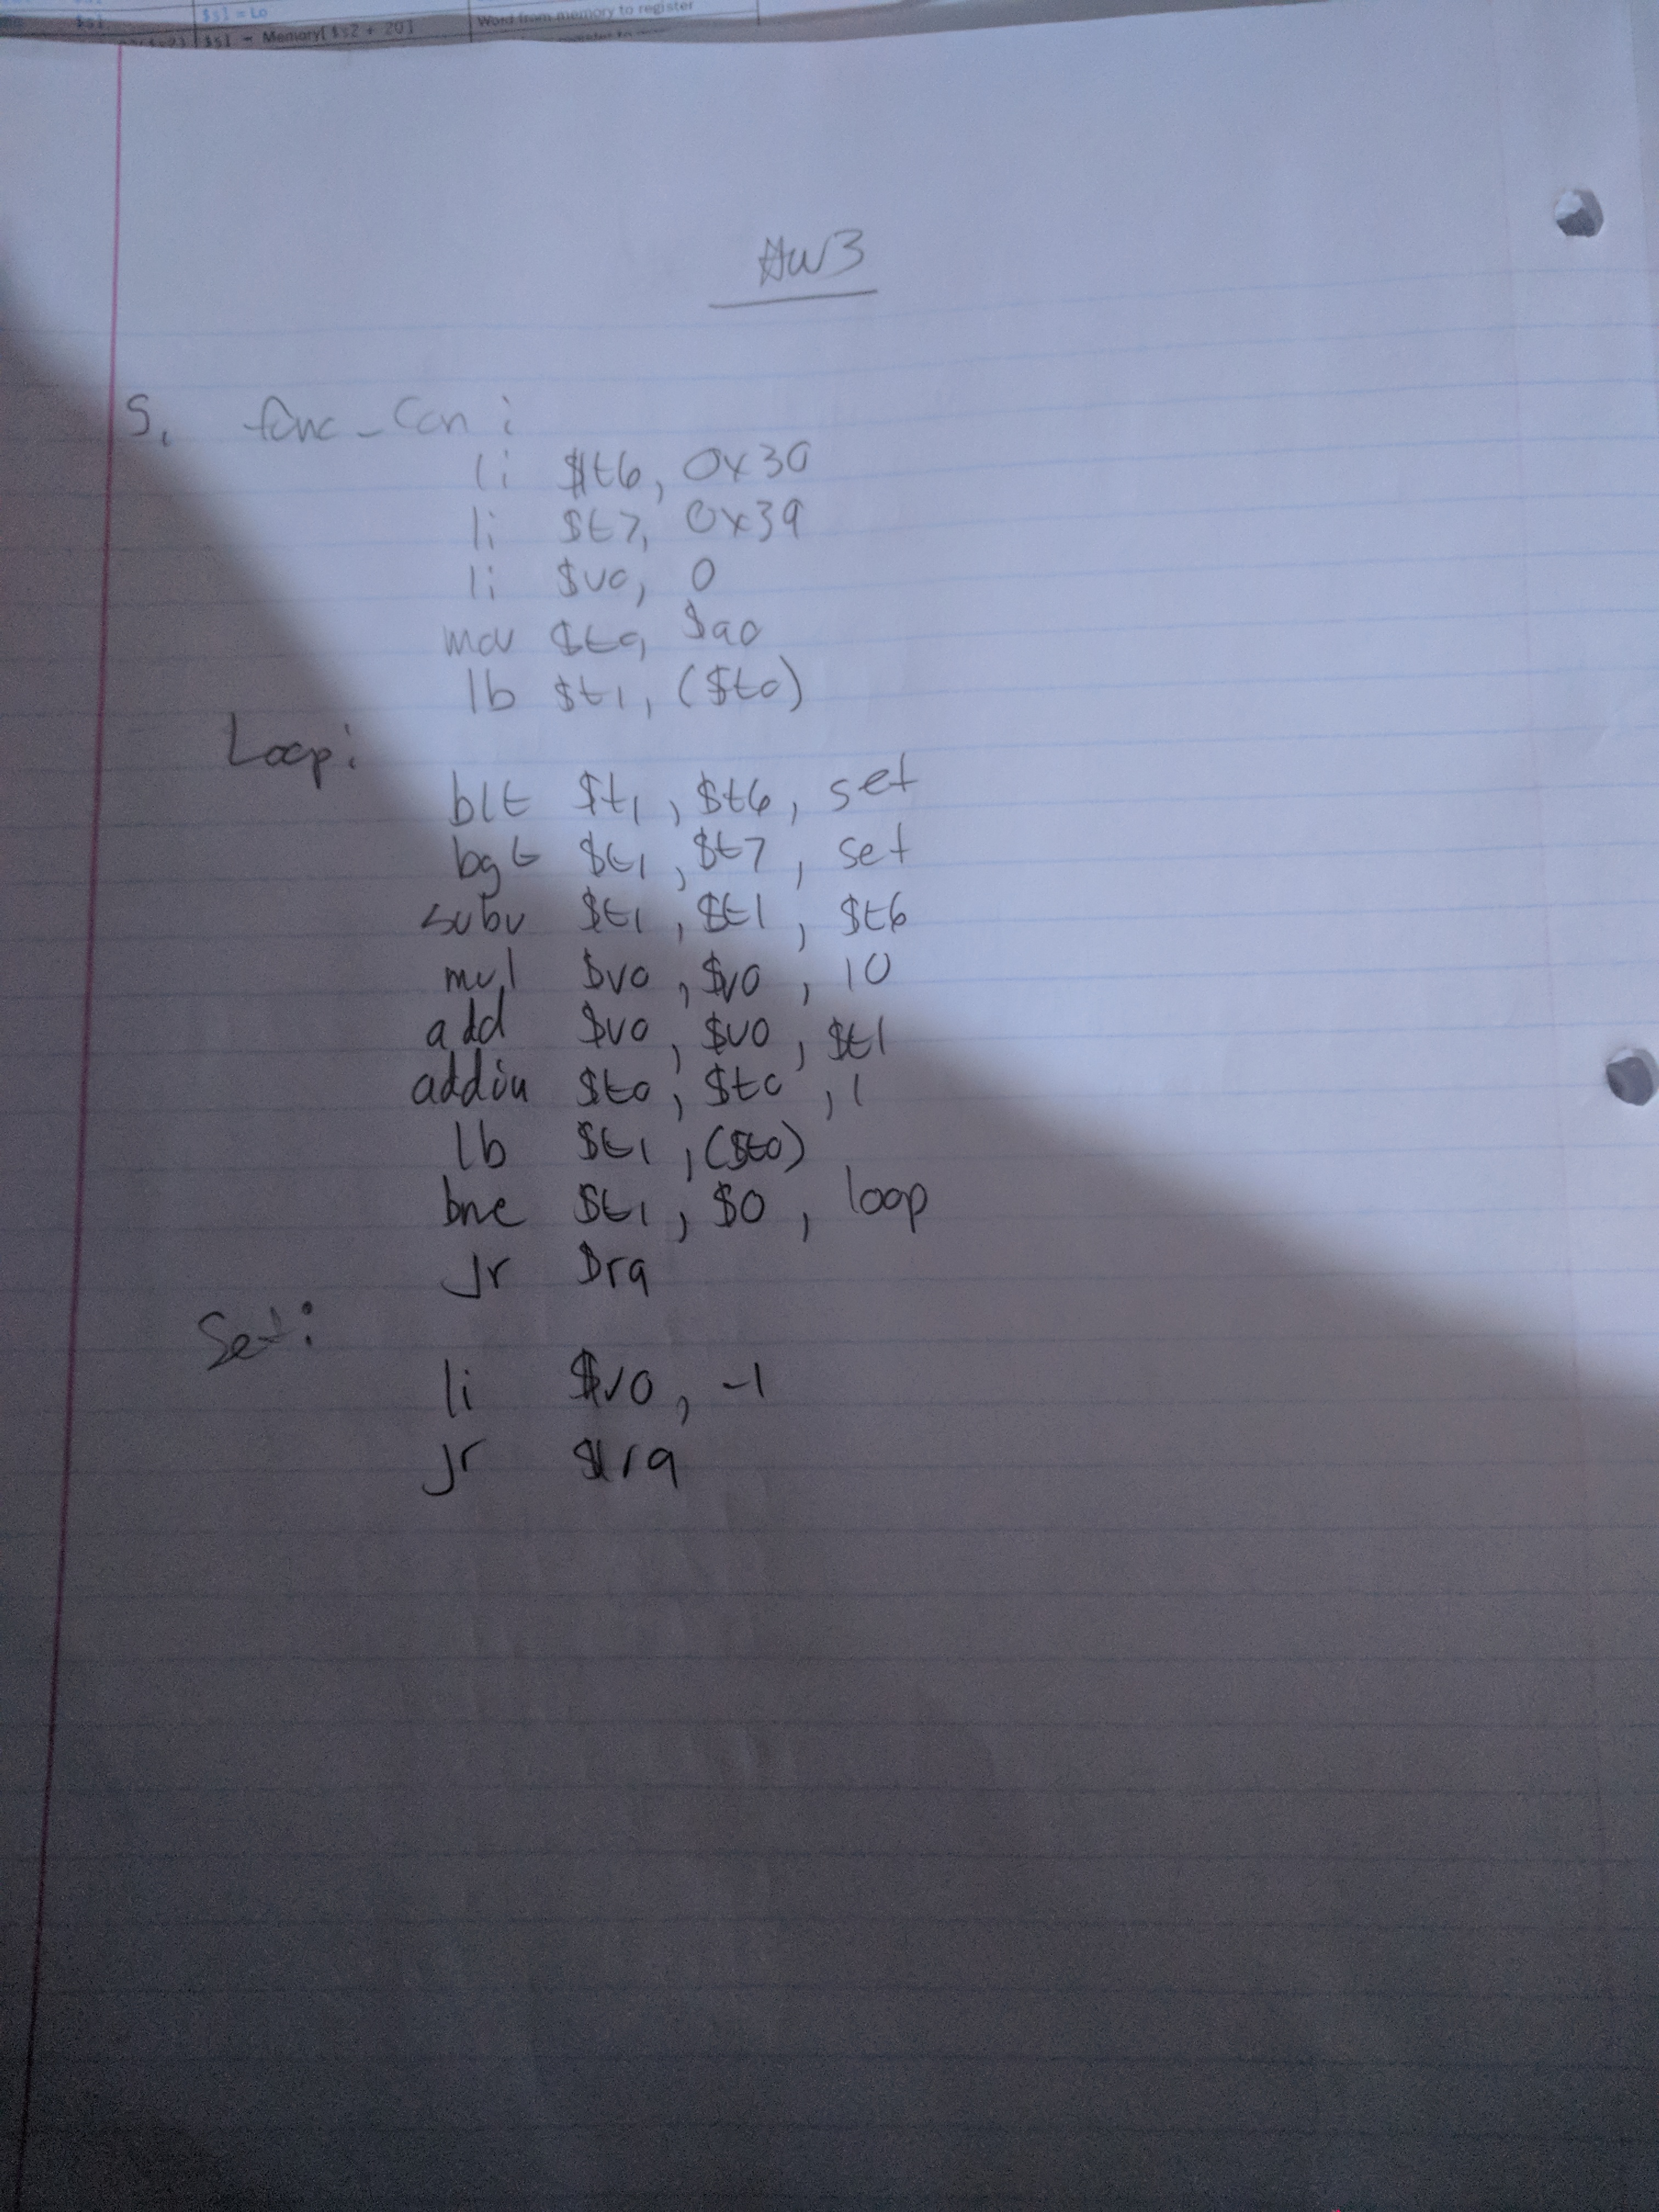 $s1 $s1 = Lo
$s1 = Memory[ $s2 + 20] Word from memory to register
HW3
5. func_Con:
li $t6, 0x30
li $t7, 0x39
li $v0, 0
mov $t0, $a0
lb $t1, ($t0)
Loop:
blt $t1, $t6, set
bgt $t1, $t7, set
subu $t1, $t1, $t6
mul $v0, $v0, 10
add $v0, $v0, $t1
addiu $t0, $t0, 1
lb $t1, ($t0)
bne $t1, $0, loop
jr $ra
Set:
li $v0, -1
jr $ra